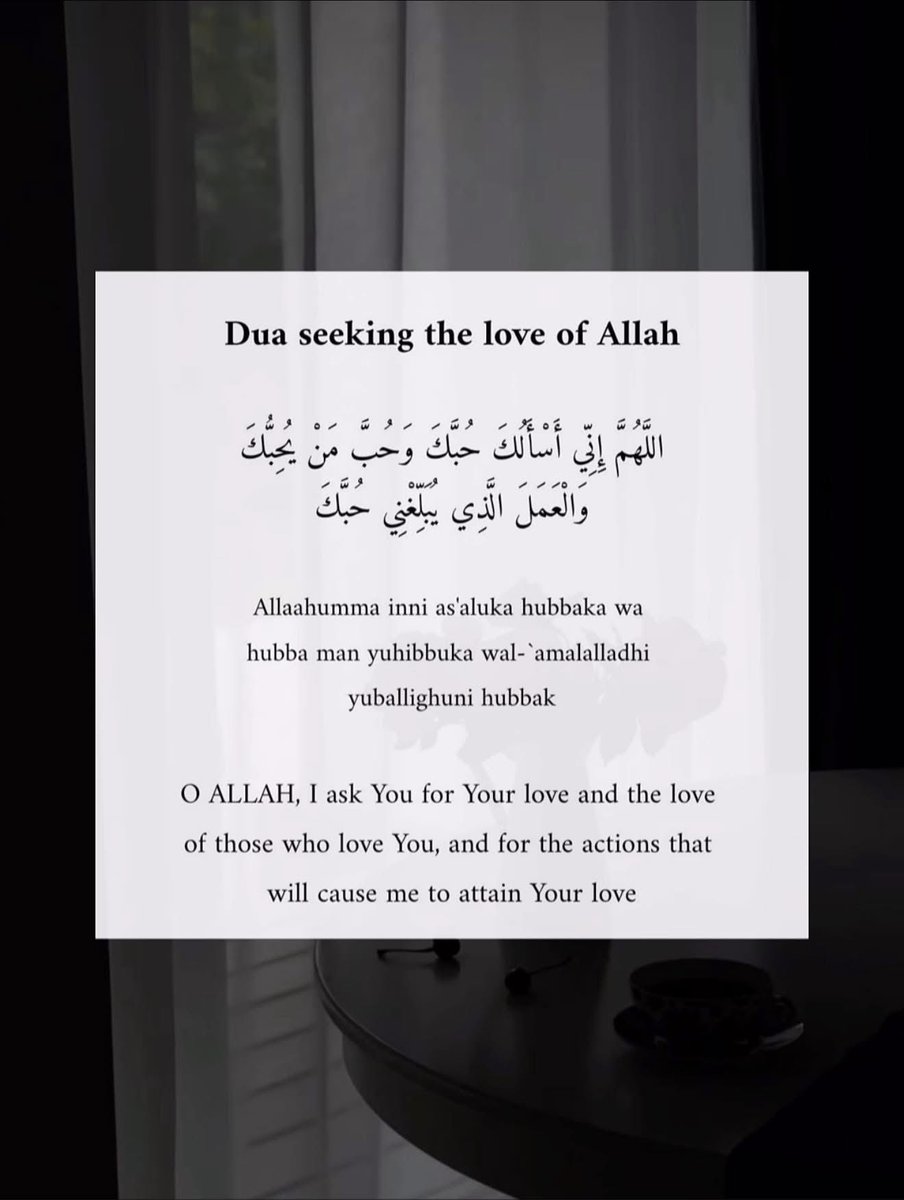 Dua seeking the love of Allah
اللَّهُمَّ إِنِّي أَسْأَلُكَ حُبَّكَ وَحُبَّ مَنْ يُحِبُّكَ
وَالْعَمَلَ الَّذِي يُبَلِّغُنِي حُبَّكَ
Allaahumma inni as'aluka hubbaka wa
hubba man yuhibbuka wal-`amalalladhi
yuballighuni hubbak
O ALLAH, I ask You for Your love and the love
of those who love You, and for the actions that
will cause me to attain Your love